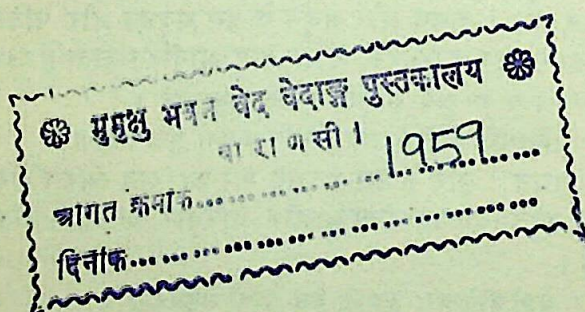 ❀ मुमुक्षु भवन वेद वेदाङ्ग पुस्तकालय ❀
वाराणसी।
आगत क्रमांक.......... 1959..........
दिनांक..........